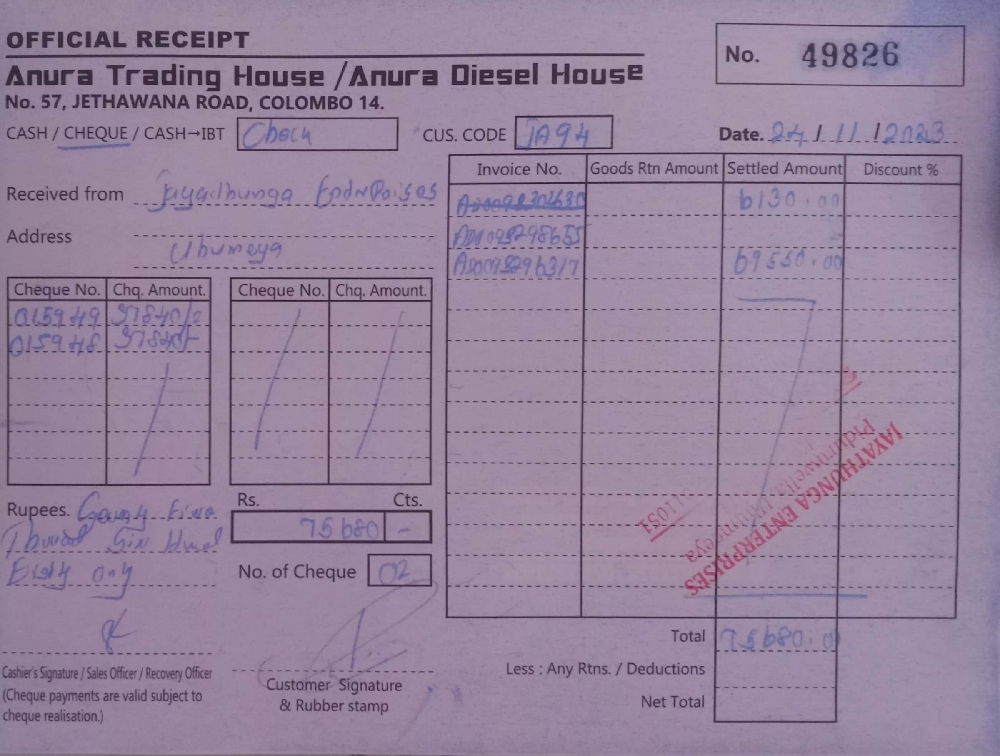 OFFICIAL RECEIPT
No. 49826
Anura Trading House / Anura Diesel House
No. 57, JETHAWANA ROAD, COLOMBO 14.
CASH / CHEQUE / CASH→IBT Check
CUS. CODE JA94
Date. 24 / 11 / 2023
Received from
Address
Invoice No. Goods Rtn Amount Settled Amount Discount %
6130.00
69550.00
Cheque No. Chq. Amount. Cheque No. Chq. Amount.
015949 37840/-
015948 37840/-
Rupees.
only
Rs. Cts.
75680 -
No. of Cheque 02
JAYATHUNGA ENTERPRISES
Total 75680.00
Less : Any Rtns. / Deductions
Net Total
Cashier's Signature / Sales Officer / Recovery Officer
(Cheque payments are valid subject to
cheque realisation.)
Customer Signature
& Rubber stamp